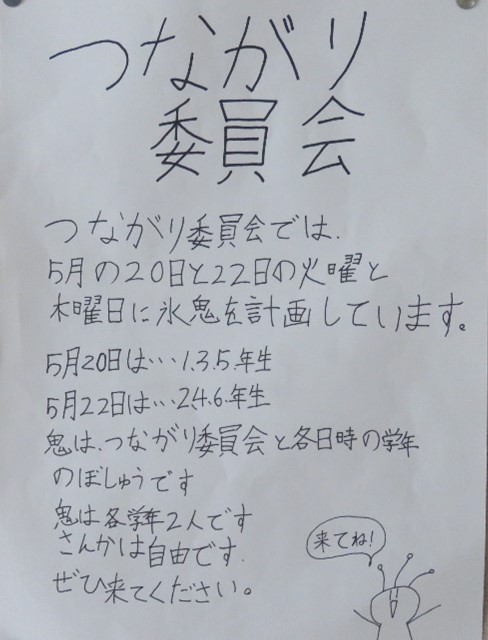 つながり
委員会
つながり委員会では、
5月の20日と22日の火曜と
木曜日に氷鬼を計画しています。
5月20日は…1.3.5.年生
5月22日は…2.4.6.年生
鬼は、つながり委員会と各日時の学年
のぼしゅうです
鬼は各学年2人です
さんかは自由です.
ぜひ来てください。
来てね!